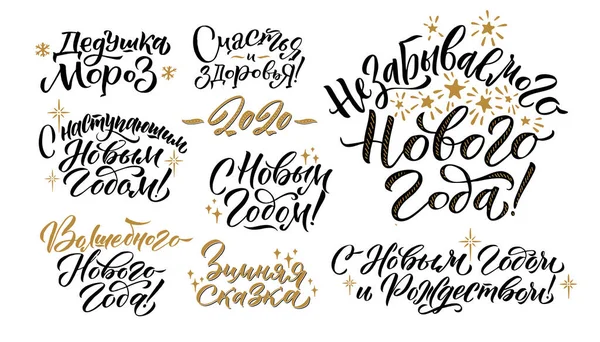 Дедушка
Мороз
Счастья
и
здоровья!
Незабываемого
Нового
года!
С наступающим
Новым
Годом!
2020
С Новым
Годом!
Волшебного
Нового
Года!
Зимняя
сказка
С Новым Годом
и Рождеством!